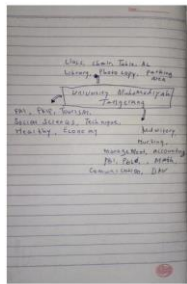 Class, Chair, Table, AC
Library, Photo copy, parking
area
University Muhamadiyah
Tangerang
PAI, Tourism,
Social Sciences, Technique,
Healthy, Economy
Midwifery
Nursing,
management, accounting
PAI, Math
Communication,